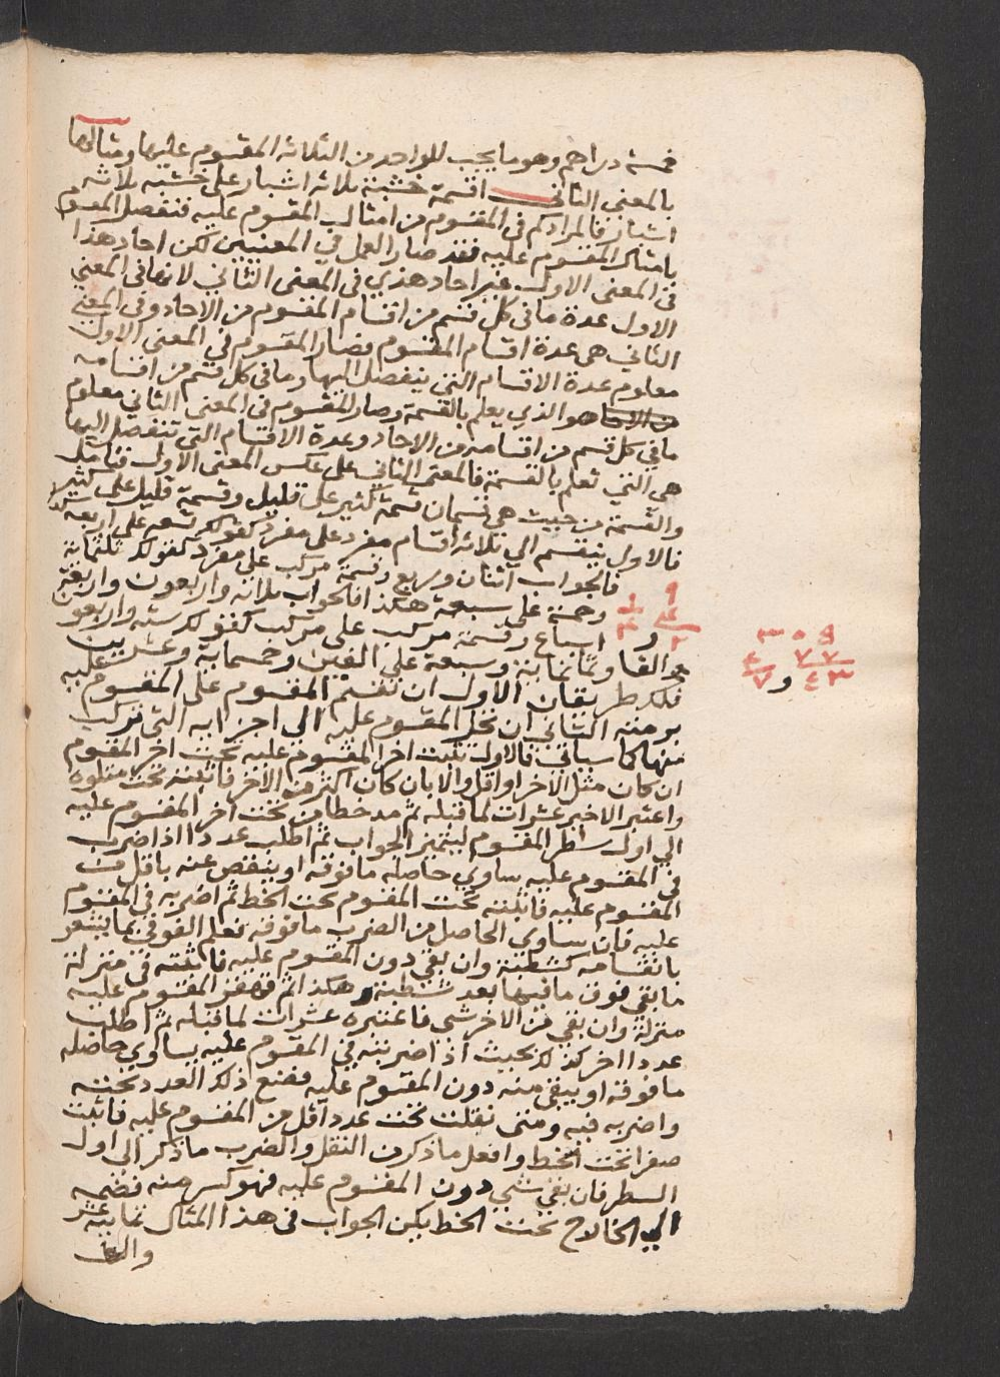 خمسة دراهم وهو ما يجب للواحد من الثلاثة المقسوم عليها ومثالها
بالمعنى الثاني اقسمة خشبة ثلاثة اشبار على خشبة ثلاثة
اشبار فالمراد كم في المقسوم من امثال المقسوم عليه فتفصل المقسوم
بامثال المقسوم عليه فقد صار العمل في المعنيين لكن احاد هذا
في المعنى الاول غير احاد هذي في المعنى الثاني لانها في المعني
الاول عدة ما في كل قسم من اقسام المقسوم من الاحاد وفي المعني
الثاني هي عدة اقسام المقسوم فصار المقسوم في المعنى الاول
معلوم عدة الاقسام التي ينفصل اليها وما في كل قسم من اقسامه
هو الذي يعلم بالقسمة وصار المقسوم في المعنى الثاني معلوم
ما في كل قسم من اقسامه من الاحاد وعدة الاقسام التي تنفصل اليها
هي التي تعلم بالقسمة فالمعنى الثاني على عكس المعنى الاول فتامل
والقسمة من حيث هي قسمان قسمة كثير على قليل وقسمة قليل على كثير
فالاول ينقسم الي ثلاثة اقسام مفرد على مفرد كقولك تسعه على اربعه
فالجواب اثنان وربع وقسمة مركب على مفرد كقولك ثلثماية
وخمسة على سبعة هكذا فالجواب ثلاثة واربعون واربعة
اسباع وقسمة مركب على مركب كقولك ستة واربعون
الفا وثمانماية وسبعة على الفين وخمسماية وعشرين
فلك طريقان الاول ان تقسم المقسوم على المقسوم عليه
برمته الثاني ان تحل المقسوم عليه الي اجزايه التي تركب
منها كما سياتي فالاول تثبت اخر المقسوم عليه تحت اخر المقسوم
ان كان مثل الاخر او اقل والا بان كان اكثر من الاخر فاثبته تحت متلوه
واعتبر الاخير عشرات لما قبله ثم مد خطا من تحت اخر المقسوم عليه
الي اول سطر المقسوم ليتميز الجواب ثم اطلب عددا اذا ضرب
في المقسوم عليه ساوي حاصله ما فوقه او ينقص عنه باقل من
المقسوم عليه فاثبته تحت المقسوم تحت الخط ثم اضربه في المقسوم
عليه فان ساوي الحاصل من الضرب ما فوقه فعلم الفوقي بما يشعر
بانقسامه كشطبة وان بقي دون المقسوم عليه فاثبته في منزلة
ما بقي فوق ما فيها بعد شطبه وهكذا ثم قهقر المقسوم عليه
منزلة وان بقي من الاخر شي فاعتبره عشرات لما قبله ثم اطلب
عددا اخر كذلك بحيث اذا ضربته في المقسوم عليه يساوي حاصله
ما فوقه او يبقي منه دون المقسوم عليه فضع ذلك العدد تحته
واضربه فيه ومتى نقلت تحت عدد اقل من المقسوم عليه فاثبت
صفرا تحت الخط وافعل ما ذكر من النقل والضرب ما ذكر الي اول
السطر فان بقي شي دون المقسوم عليه فهو كسر منه فضمه
الي الخارج تحت الخط يكن الجواب في هذا المثال ثمانية عشر
٩ ١
٤ و ٤
٢
٣ ٠ ٥
٧ ٧ ٤
٤٣ و ٧